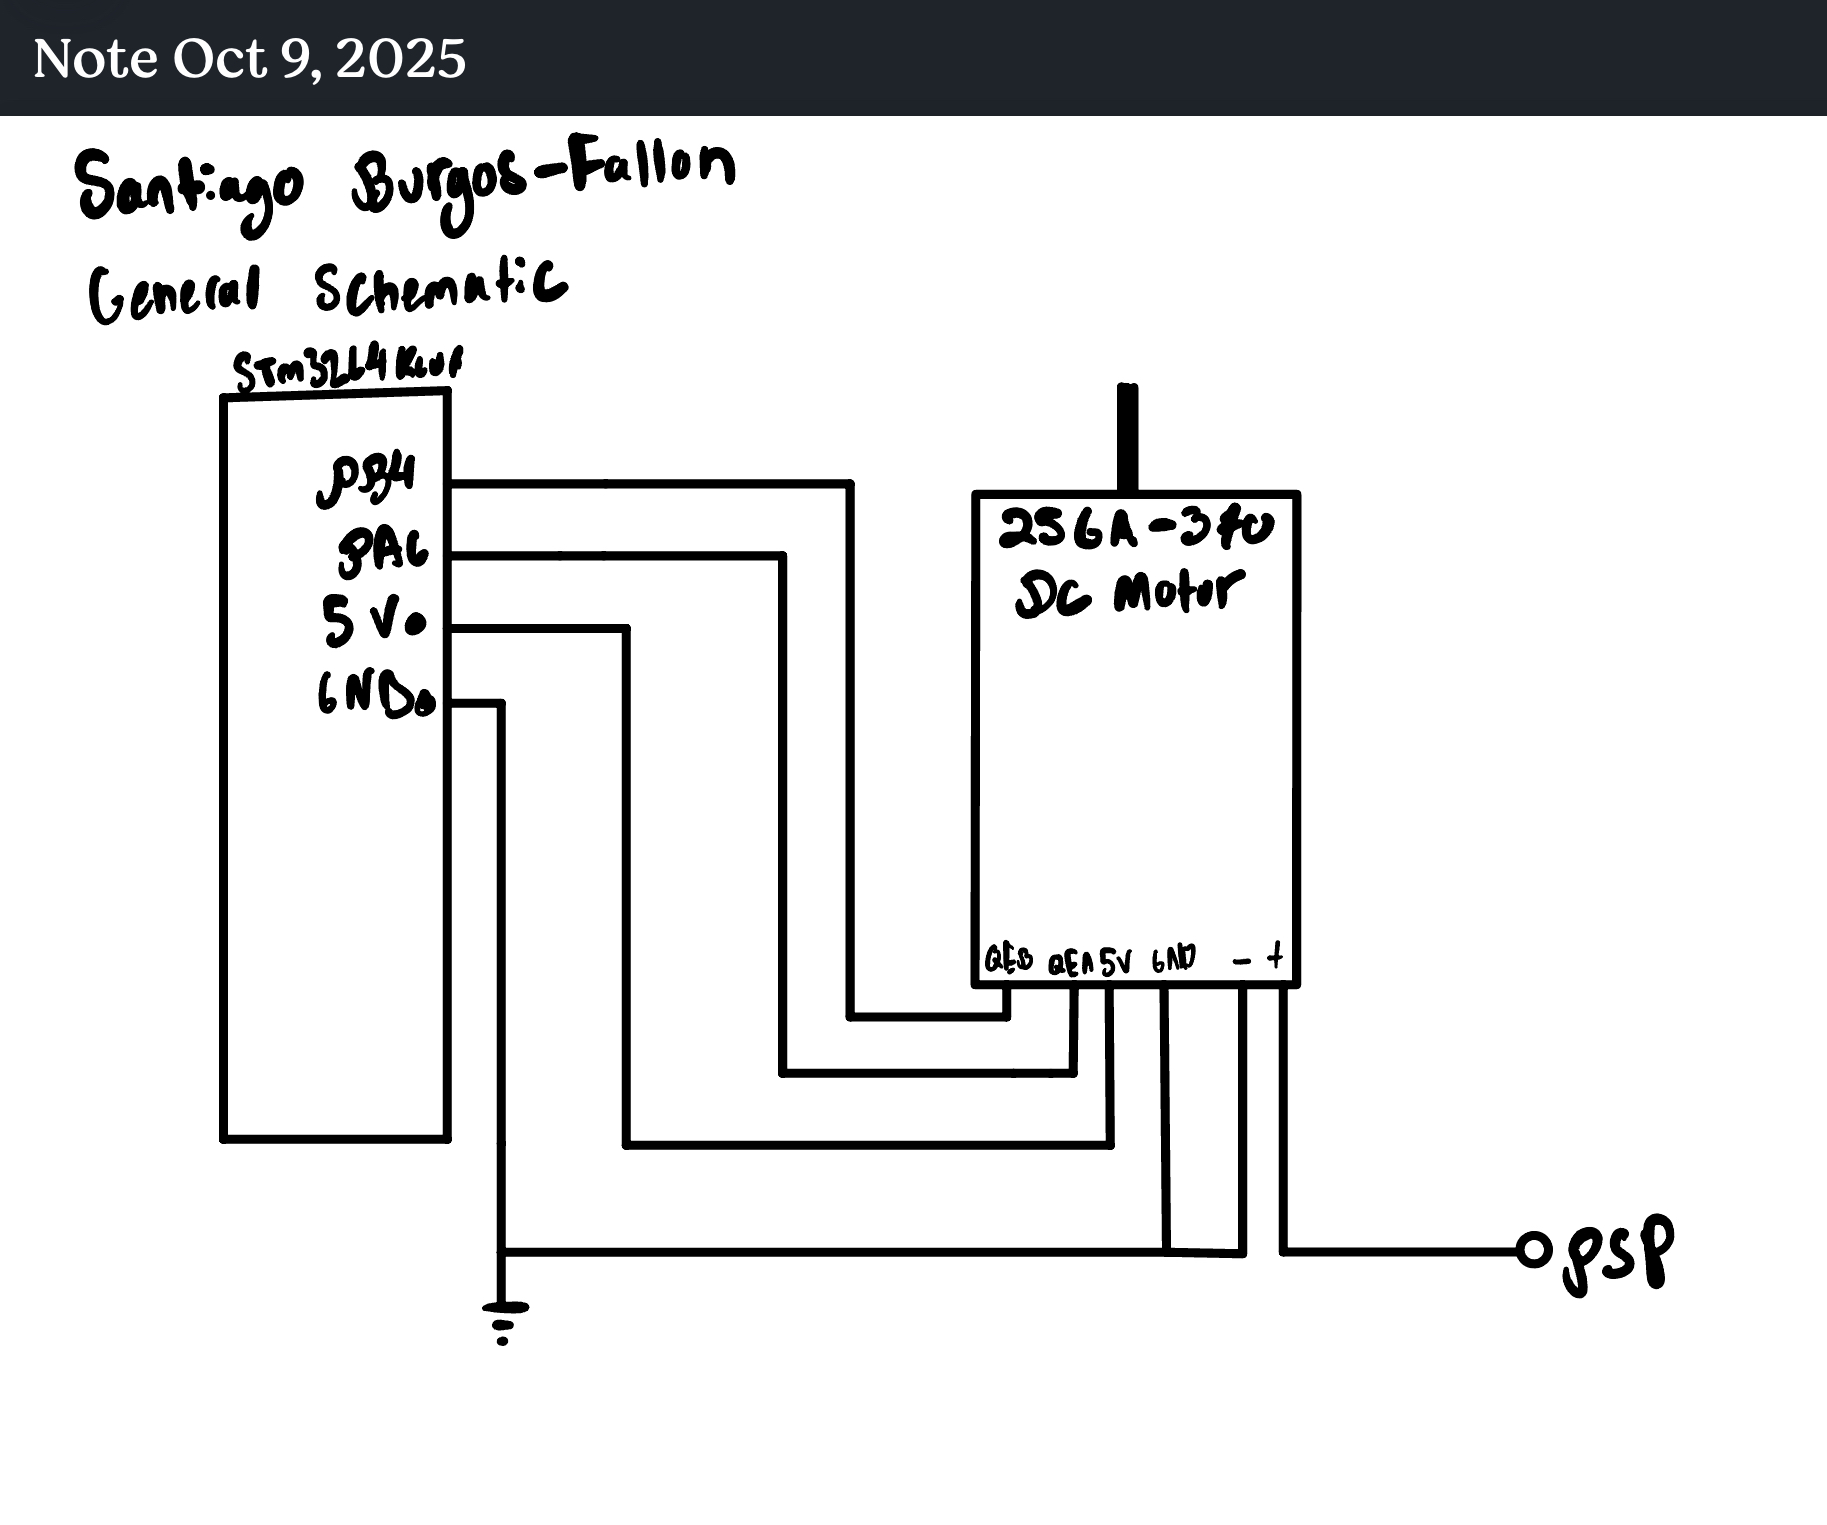 Note Oct 9, 2025
Santiago Burgos-Fallon
General Schematic
PB4
PA6
5V
GND
25GA-370
DC Motor
QEB QEA 5V GND - +
PSP